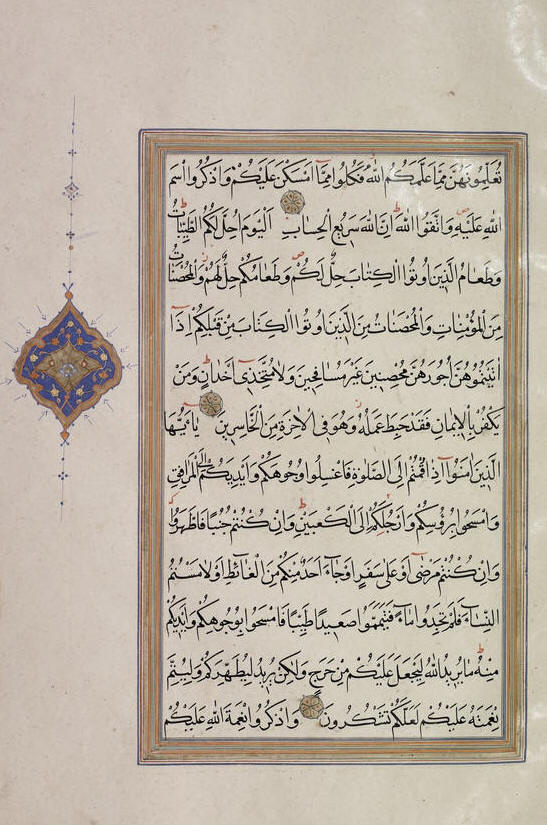 تُعَلِّمُونَهُنَّ مِمَّا عَلَّمَكُمُ اللَّهُ فَكُلُوا مِمَّا أَمْسَكْنَ عَلَيْكُمْ وَاذْكُرُوا اسْمَ
اللَّهِ عَلَيْهِ وَاتَّقُوا اللَّهَ إِنَّ اللَّهَ سَرِيعُ الْحِسَابِ الْيَوْمَ أُحِلَّ لَكُمُ الطَّيِّبَاتُ
وَطَعَامُ الَّذِينَ أُوتُوا الْكِتَابَ حِلٌّ لَكُمْ وَطَعَامُكُمْ حِلٌّ لَهُمْ وَالْمُحْصَنَاتُ
مِنَ الْمُؤْمِنَاتِ وَالْمُحْصَنَاتُ مِنَ الَّذِينَ أُوتُوا الْكِتَابَ مِنْ قَبْلِكُمْ إِذَا
آتَيْتُمُوهُنَّ أُجُورَهُنَّ مُحْصِنِينَ غَيْرَ مُسَافِحِينَ وَلَا مُتَّخِذِي أَخْدَانٍ وَمَنْ
يَكْفُرْ بِالْإِيمَانِ فَقَدْ حَبِطَ عَمَلُهُ وَهُوَ فِي الْآخِرَةِ مِنَ الْخَاسِرِينَ يَا أَيُّهَا
الَّذِينَ آمَنُوا إِذَا قُمْتُمْ إِلَى الصَّلَوٰةِ فَاغْسِلُوا وُجُوهَكُمْ وَأَيْدِيَكُمْ إِلَى الْمَرَافِقِ
وَامْسَحُوا بِرُؤُسِكُمْ وَأَرْجُلَكُمْ إِلَى الْكَعْبَيْنِ وَإِنْ كُنْتُمْ جُنُبًا فَاطَّهَّرُوا
وَإِنْ كُنْتُمْ مَرْضَى أَوْ عَلَى سَفَرٍ أَوْ جَاءَ أَحَدٌ مِنْكُمْ مِنَ الْغَائِطِ أَوْ لَامَسْتُمُ
النِّسَاءَ فَلَمْ تَجِدُوا مَاءً فَتَيَمَّمُوا صَعِيدًا طَيِّبًا فَامْسَحُوا بِوُجُوهِكُمْ وَأَيْدِيكُمْ
مِنْهُ مَا يُرِيدُ اللَّهُ لِيَجْعَلَ عَلَيْكُمْ مِنْ حَرَجٍ وَلَكِنْ يُرِيدُ لِيُطَهِّرَكُمْ وَلِيُتِمَّ
نِعْمَتَهُ عَلَيْكُمْ لَعَلَّكُمْ تَشْكُرُونَ وَاذْكُرُوا نِعْمَةَ اللَّهِ عَلَيْكُمْ